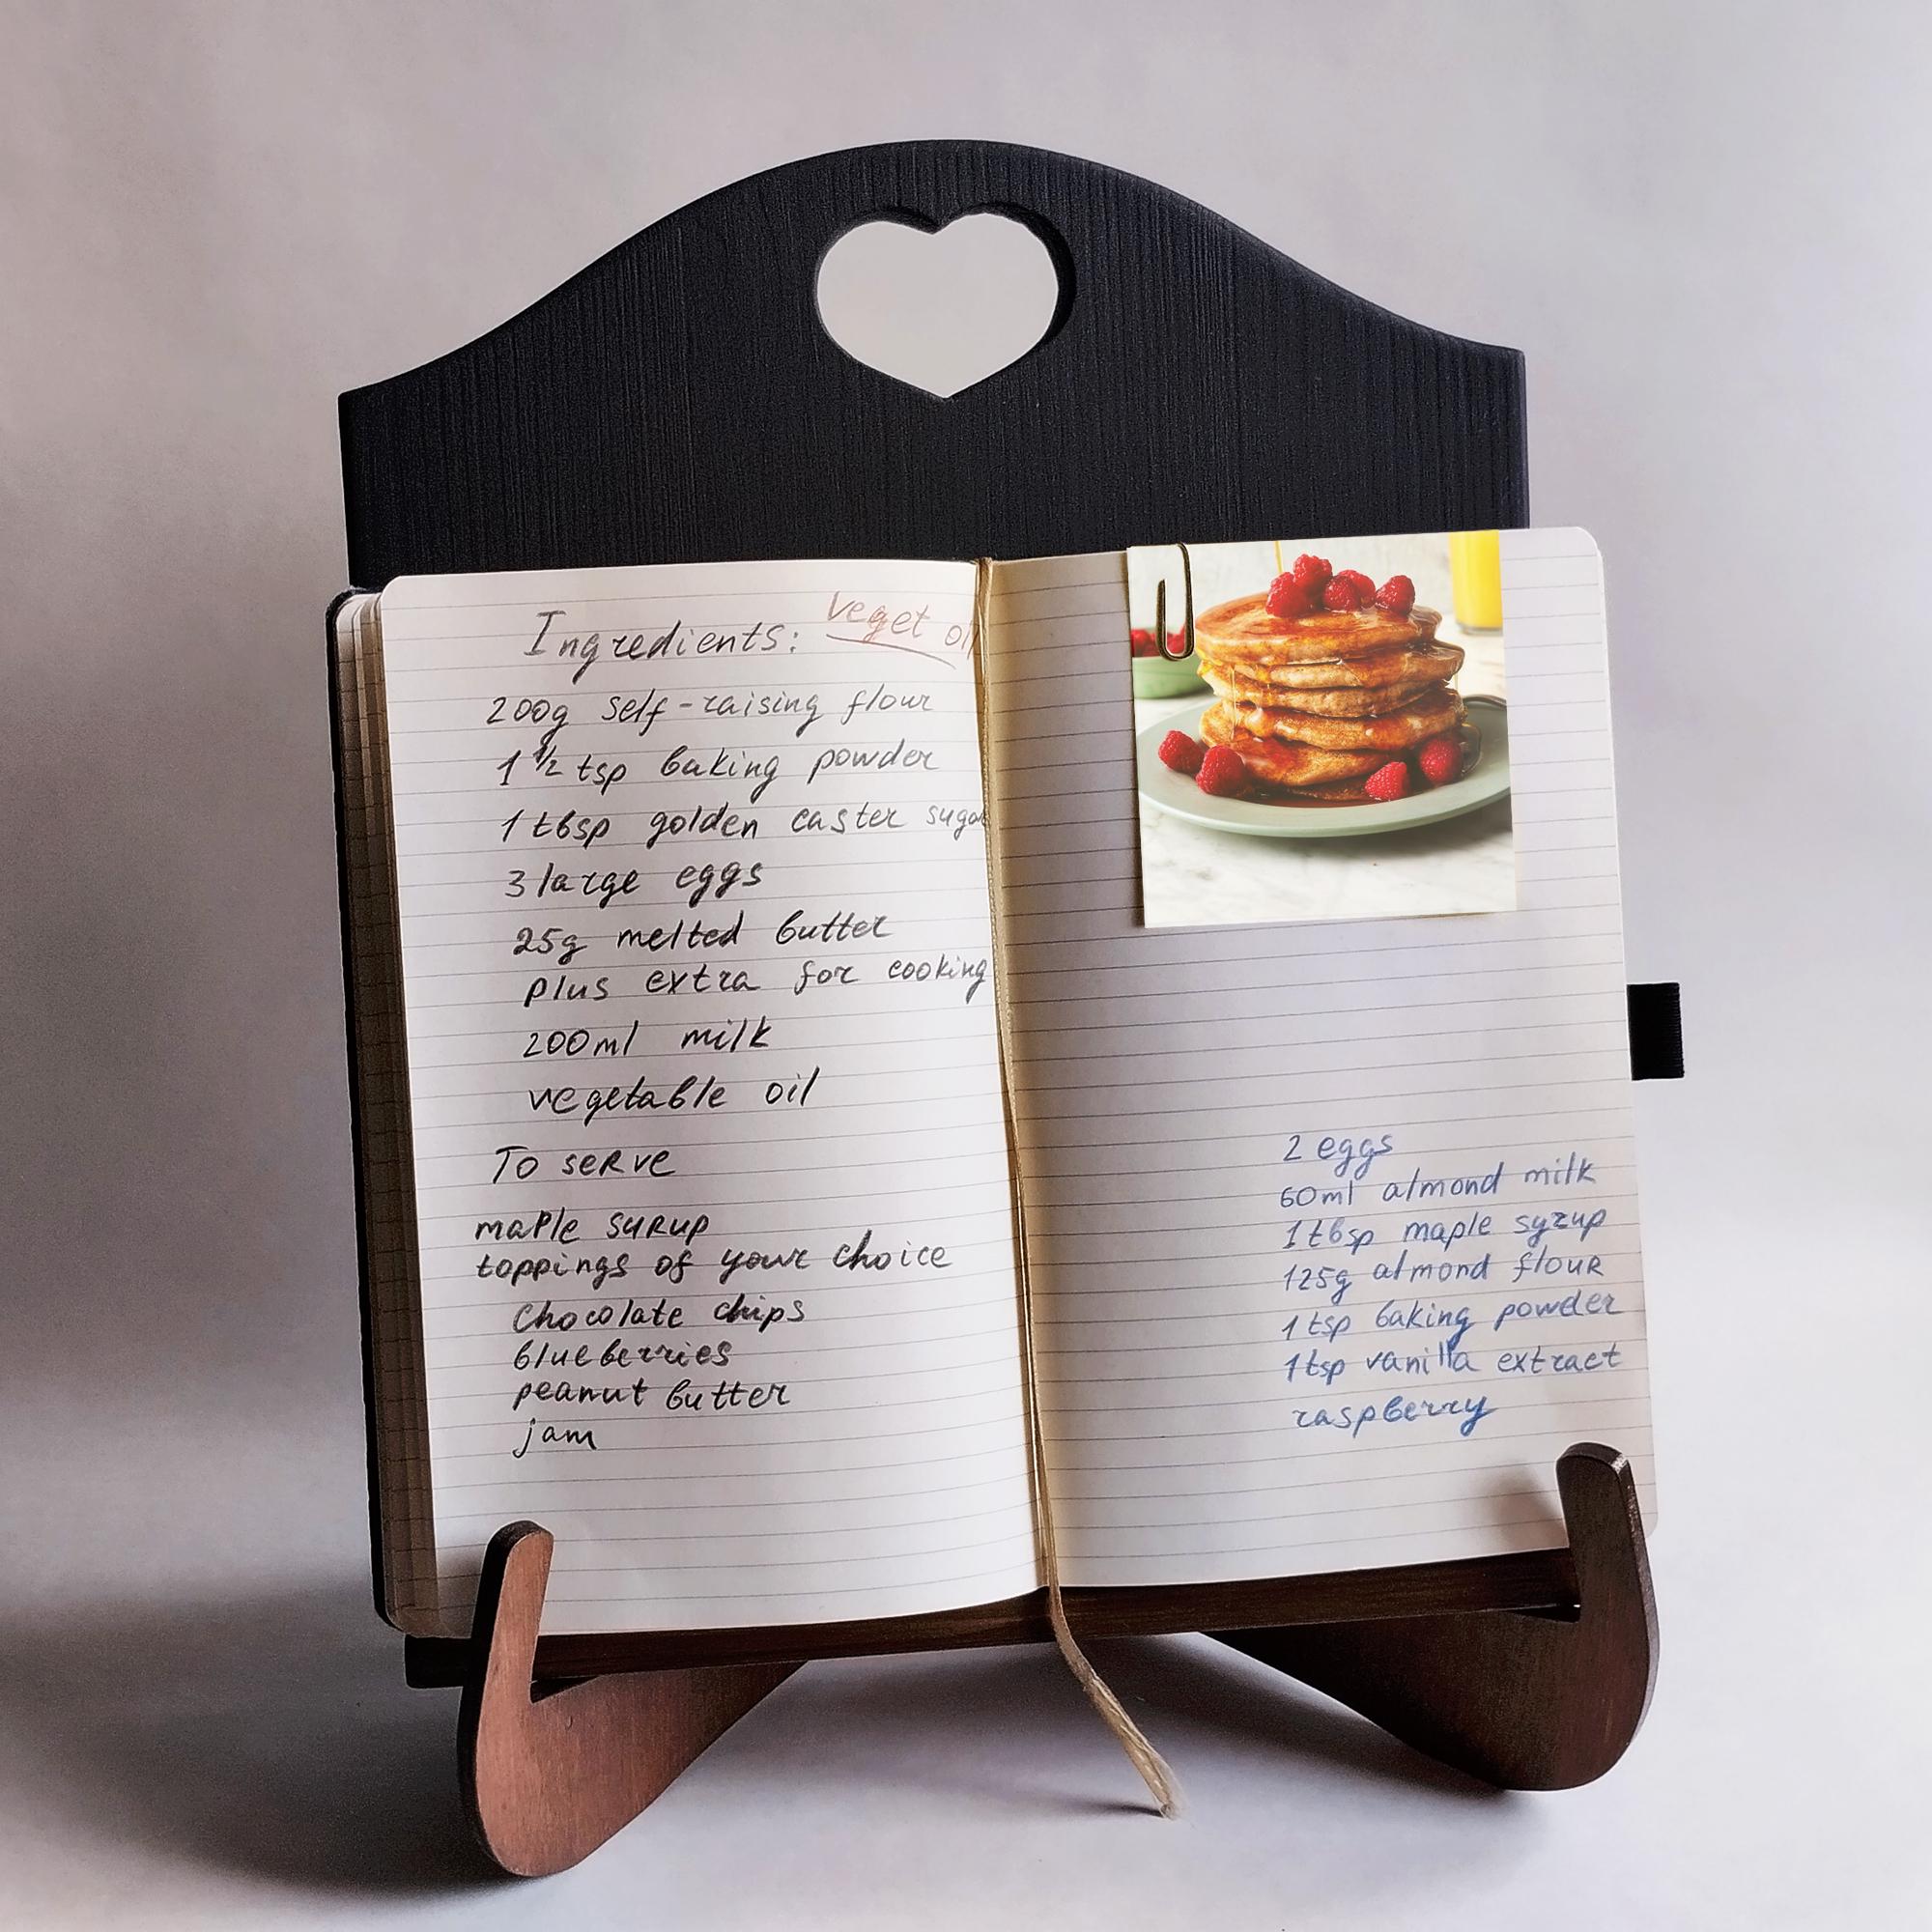 Ingredients: veget oil
200g self-raising flour
1 1/2 tsp baking powder
1 tbsp golden caster sugar
3 large eggs
25g melted butter
plus extra for cooking
200ml milk
vegetable oil
To serve
maple syrup
toppings of your choice
Chocolate chips
blueberries
peanut butter
jam
2 eggs
60ml almond milk
1 tbsp maple syrup
125g almond flour
1 tsp baking powder
1 tsp vanilla extract
raspberry